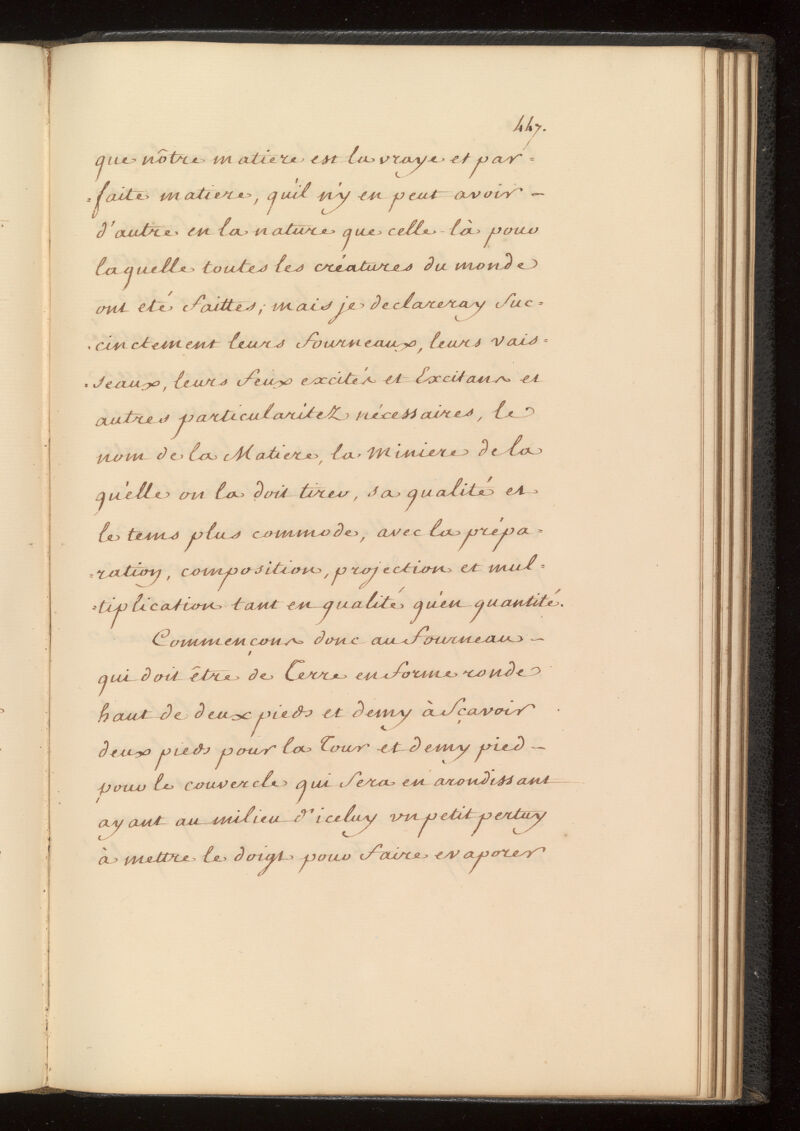 447.
que nôtre matiere est la vraye et par-
-faite matiere, qu'il n'y en peut avoir -
d'autre en la nature que celle-là pour
laquelle toutes les créatures du monde
ont eté faittes; mais je declareray suc-
-cinctement leurs fourneaux, leurs vais-
-seaux, leurs feux excités et Excitans et
autres particularitez nécessaires, le
nom de la Matiere, la Miniere de la
qu'elle on la doit tirer, sa qualité et
le tems plus commode, avec la prépa-
-ration, composition, projection et mul-
-tiplication tant en qualité qu'en quantité.
Commençons donc au fourneau -
qui doit être de Terre en forme ronde
haut de deux pieds et demy à Sçavoir
deux pieds pour la Tour et demy pied -
pour le couvercle qui sera en arondissant
ayant au milieu d'iceluy un petit pertuy
à mettre le doigt pour faire evaporer